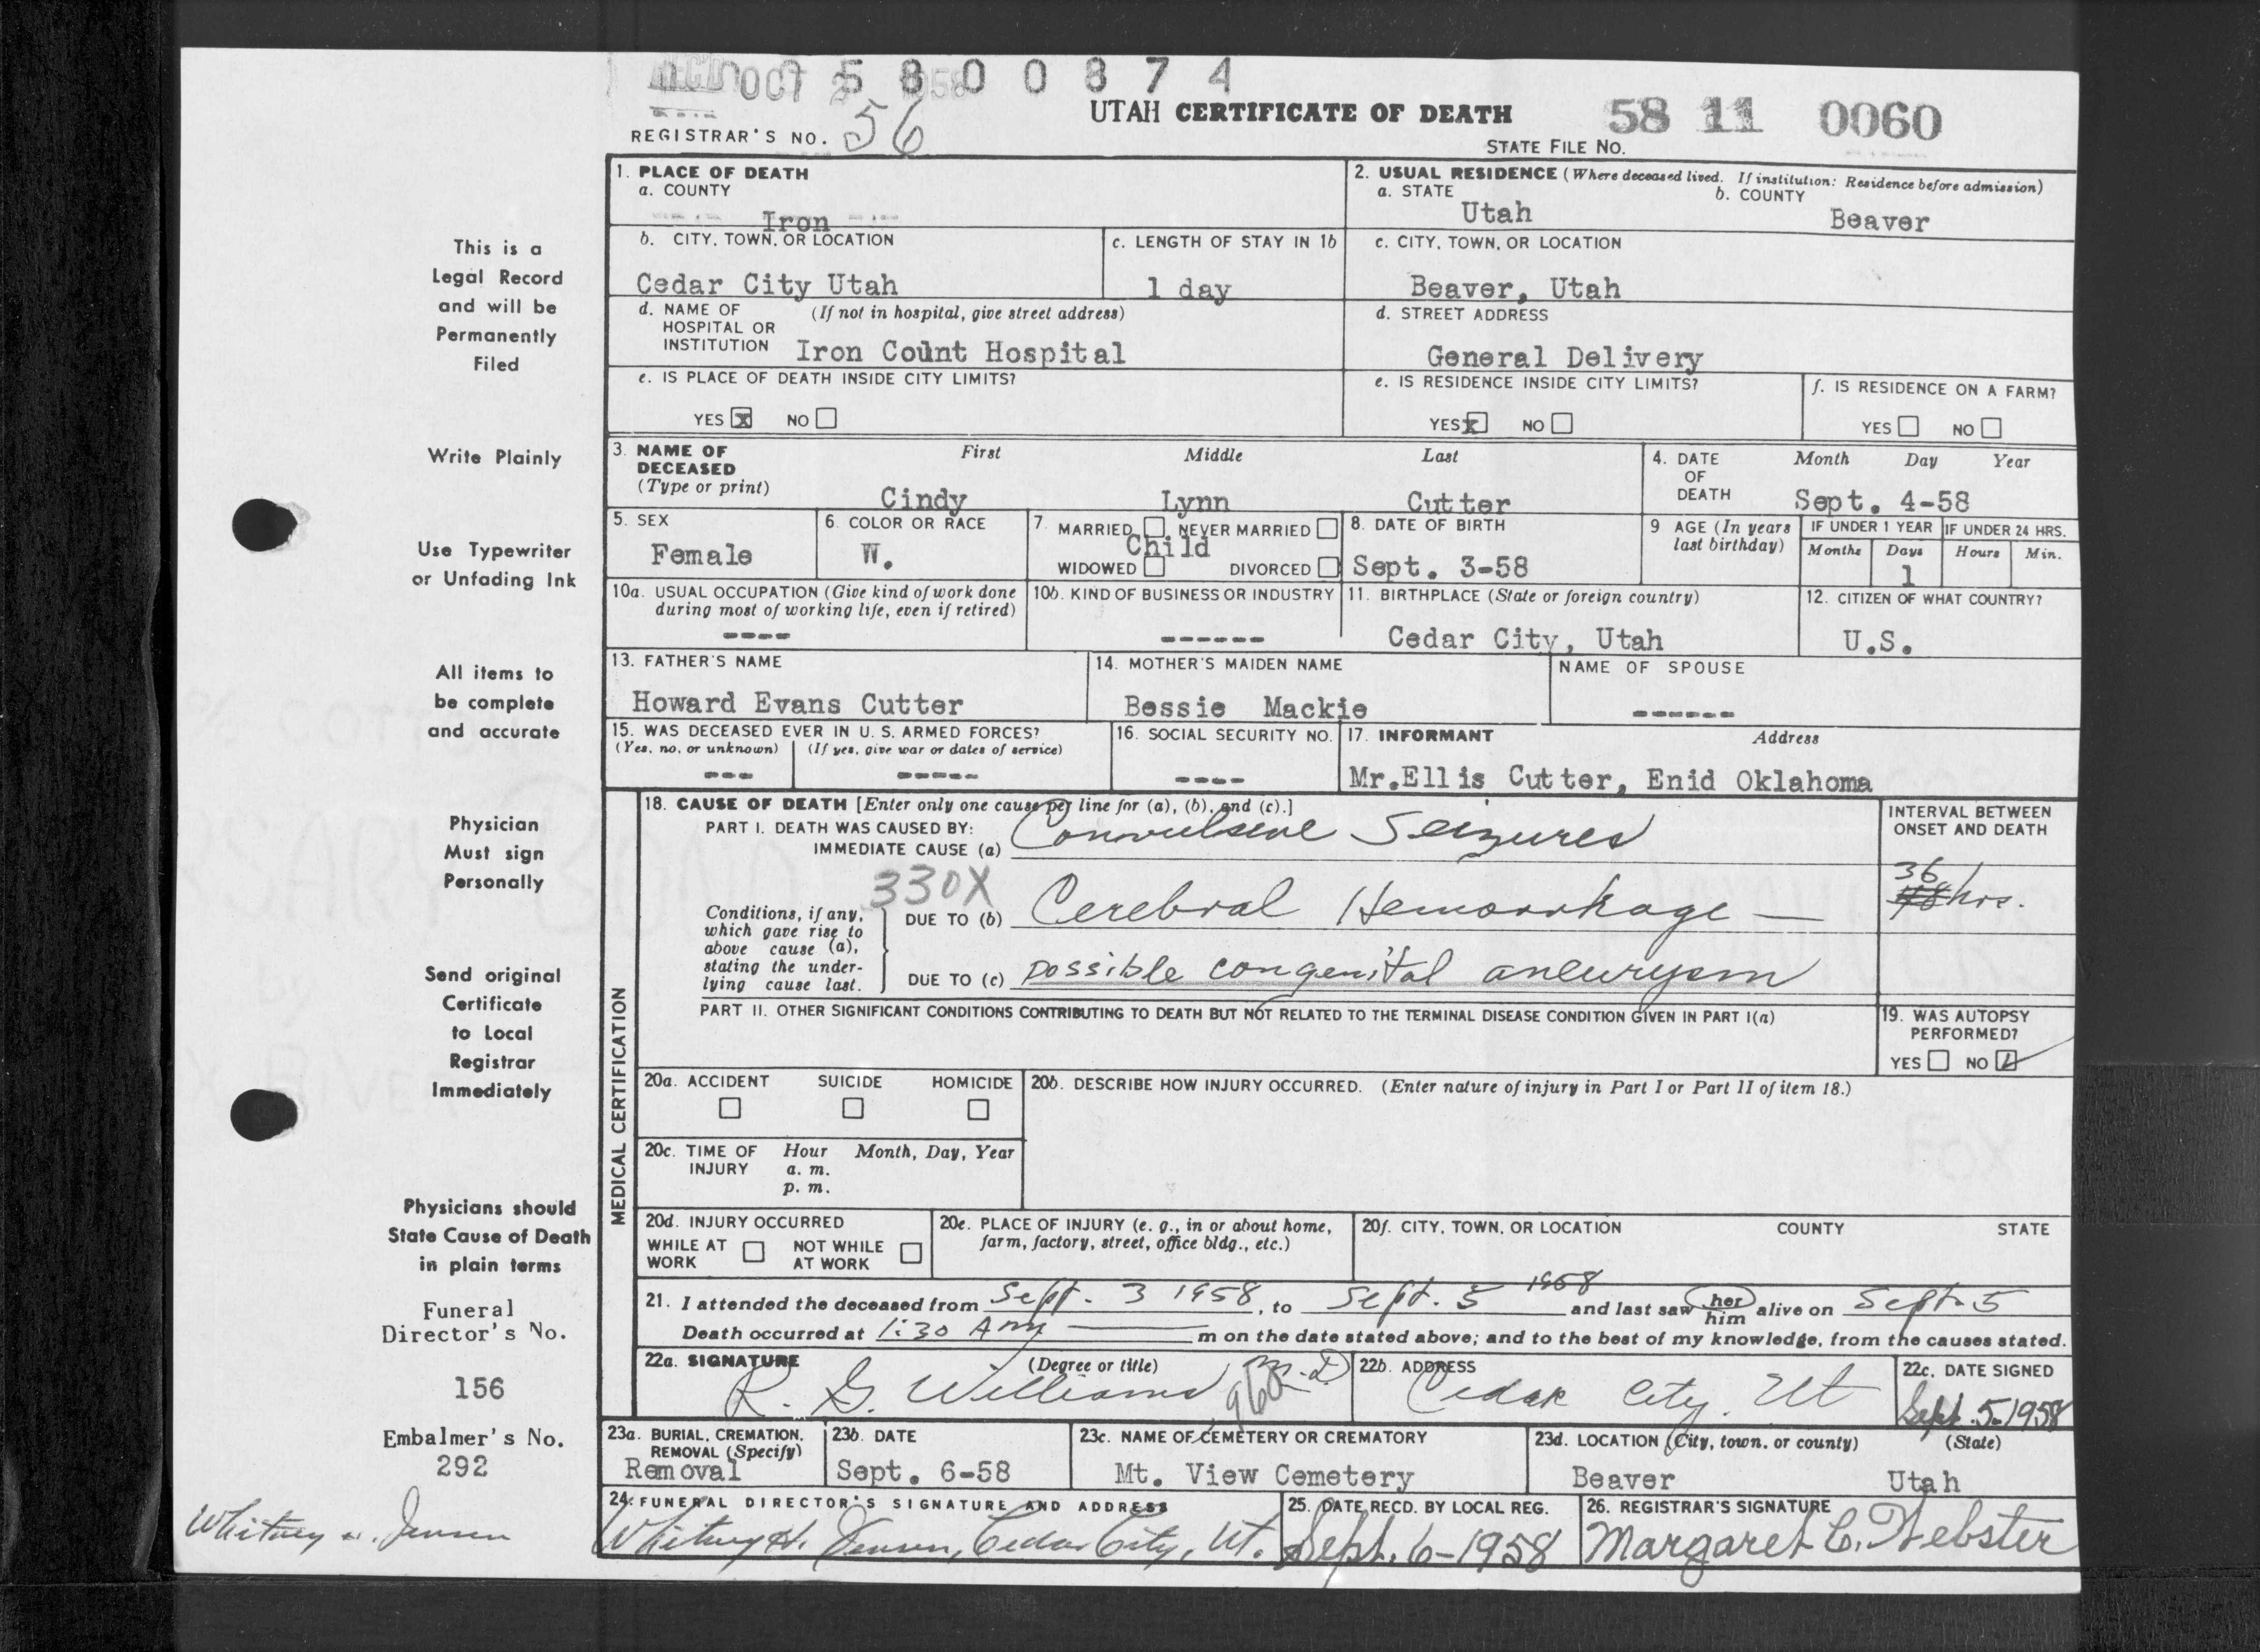 OCT 5 8 0 0 8 7 4
UTAH CERTIFICATE OF DEATH 58 11 0060
REGISTRAR'S NO. 56
STATE FILE NO.
1. PLACE OF DEATH
a. COUNTY
Iron
2. USUAL RESIDENCE (Where deceased lived. If institution: Residence before admission)
a. STATE b. COUNTY
Utah Beaver
b. CITY, TOWN, OR LOCATION c. LENGTH OF STAY IN 1b c. CITY, TOWN, OR LOCATION
Cedar City Utah 1 day Beaver, Utah
d. NAME OF (If not in hospital, give street address)
HOSPITAL OR
INSTITUTION Iron Count Hospital
d. STREET ADDRESS
General Delivery
e. IS PLACE OF DEATH INSIDE CITY LIMITS?
YES X NO
e. IS RESIDENCE INSIDE CITY LIMITS? f. IS RESIDENCE ON A FARM?
YES X NO YES NO
3. NAME OF First Middle Last
DECEASED
(Type or print)
Cindy Lynn Cutter
4. DATE Month Day Year
OF
DEATH Sept. 4-58
5. SEX
Female
6. COLOR OR RACE
W.
7. MARRIED NEVER MARRIED
Child
WIDOWED DIVORCED
8. DATE OF BIRTH
Sept. 3-58
9 AGE (In years
last birthday)
IF UNDER 1 YEAR IF UNDER 24 HRS.
Months Days Hours Min.
1
10a. USUAL OCCUPATION (Give kind of work done
during most of working life, even if retired)
----
10b. KIND OF BUSINESS OR INDUSTRY
------
11. BIRTHPLACE (State or foreign country)
Cedar City, Utah
12. CITIZEN OF WHAT COUNTRY?
U.S.
13. FATHER'S NAME
Howard Evans Cutter
14. MOTHER'S MAIDEN NAME
Bessie Mackie
NAME OF SPOUSE
------
15. WAS DECEASED EVER IN U. S. ARMED FORCES?
(Yes, no, or unknown) (If yes, give war or dates of service)
--- -----
16. SOCIAL SECURITY NO.
----
17. INFORMANT Address
Mr.Ellis Cutter, Enid Oklahoma
18. CAUSE OF DEATH [Enter only one cause per line for (a), (b), and (c).]
PART I. DEATH WAS CAUSED BY:
IMMEDIATE CAUSE (a) Convulsive Seizures
330X
Conditions, if any,
which gave rise to
above cause (a),
stating the under-
lying cause last.
DUE TO (b) Cerebral Hemorrhage —
DUE TO (c) possible congenital aneurysm
INTERVAL BETWEEN
ONSET AND DEATH
36
48 hrs.
PART II. OTHER SIGNIFICANT CONDITIONS CONTRIBUTING TO DEATH BUT NOT RELATED TO THE TERMINAL DISEASE CONDITION GIVEN IN PART I(a)
19. WAS AUTOPSY
PERFORMED?
YES NO
20a. ACCIDENT SUICIDE HOMICIDE
20b. DESCRIBE HOW INJURY OCCURRED. (Enter nature of injury in Part I or Part II of item 18.)
20c. TIME OF Hour Month, Day, Year
INJURY a. m.
p. m.
20d. INJURY OCCURRED
WHILE AT NOT WHILE
WORK AT WORK
20e. PLACE OF INJURY (e. g., in or about home,
farm, factory, street, office bldg., etc.)
20f. CITY, TOWN, OR LOCATION COUNTY STATE
21. I attended the deceased from Sept. 3 1958, to Sept. 5 1958 and last saw her him alive on Sept. 5
Death occurred at 1:30 Am m on the date stated above; and to the best of my knowledge, from the causes stated.
22a. SIGNATURE (Degree or title)
R. G. Williams M.D
22b. ADDRESS
Cedar City. Ut
22c. DATE SIGNED
Sept. 5-1958
23a. BURIAL, CREMATION,
REMOVAL (Specify)
Removal
23b. DATE
Sept. 6-58
23c. NAME OF CEMETERY OR CREMATORY
Mt. View Cemetery
23d. LOCATION (City, town, or county) (State)
Beaver Utah
24. FUNERAL DIRECTOR'S SIGNATURE AND ADDRESS
Whitney H. Jensen, Cedar City, Ut.
25. DATE RECD. BY LOCAL REG.
Sept. 6-1958
26. REGISTRAR'S SIGNATURE
Margaret C. Webster
MEDICAL CERTIFICATION
This is a
Legal Record
and will be
Permanently
Filed
Write Plainly
Use Typewriter
or Unfading Ink
All items to
be complete
and accurate
Physician
Must sign
Personally
Send original
Certificate
to Local
Registrar
Immediately
Physicians should
State Cause of Death
in plain terms
Funeral
Director's No.
156
Embalmer's No.
292
Whitney H. Jensen